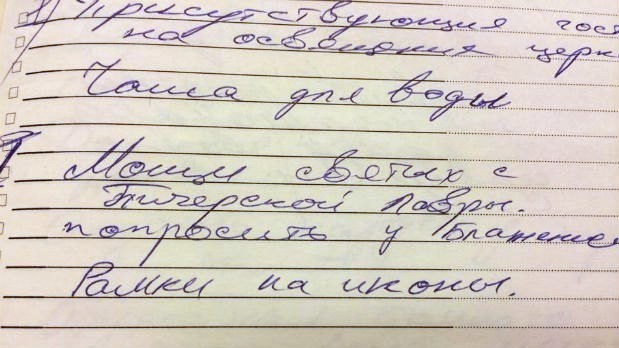 Присутствующия гост
на освещения церк
Чаша для воды
Мощи святых с
Печерской Лавры.
попросить у Блаженне
Рамки на иконы.